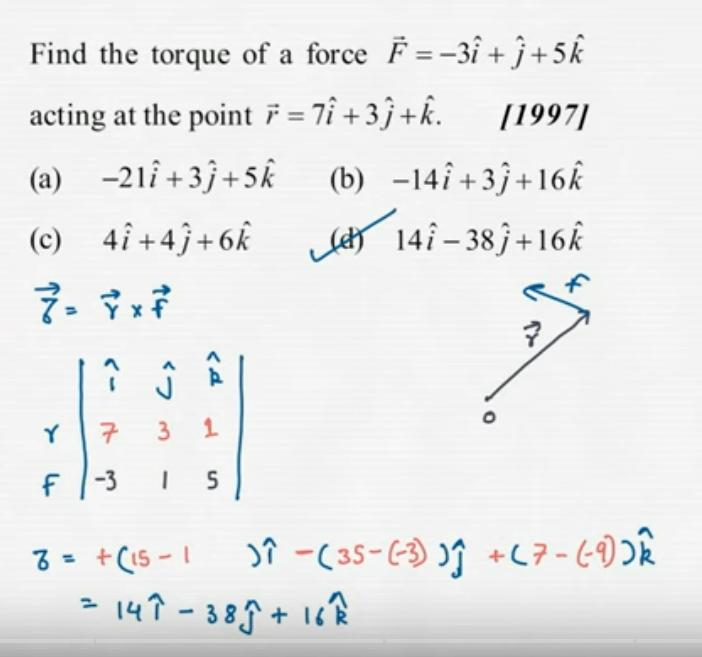 Find the torque of a force F⃗ = −3î + ĵ + 5k̂
acting at the point r⃗ = 7î + 3ĵ + k̂. [1997]
(a) −21î + 3ĵ + 5k̂ (b) −14î + 3ĵ + 16k̂
(c) 4î + 4ĵ + 6k̂ (d) 14î − 38ĵ + 16k̂
τ⃗ = r⃗ × F⃗
F
r⃗
î ĵ k̂
r 7 3 1
F -3 1 5
o
τ = +(15 - 1 )î -(35-(-3))ĵ +(7-(-9))k̂
= 14î - 38ĵ + 16k̂